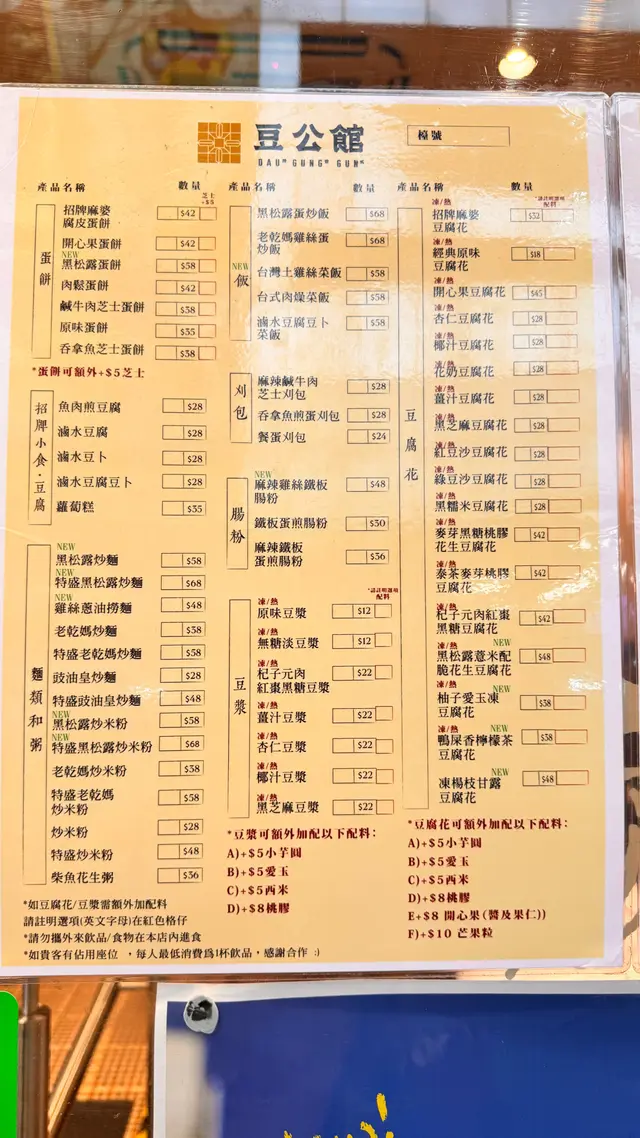 豆公館
DAUᴴ GUNGᴴ GUNᴷ
檯號
產品名稱
數量
芝士
+$5
蛋餅
招牌麻婆
腐皮蛋餅
$42
開心果蛋餅
$42
NEW
黑松露蛋餅
$58
肉鬆蛋餅
$42
鹹牛肉芝士蛋餅
$38
原味蛋餅
$35
吞拿魚芝士蛋餅
$38
*蛋餅可額外+$5芝士
招牌小食·豆腐
魚肉煎豆腐
$28
滷水豆腐
$28
滷水豆卜
$28
滷水豆腐豆卜
$28
蘿蔔糕
$35
麵類和粥
NEW
黑松露炒麵
$58
NEW
特盛黑松露炒麵
$68
NEW
雞絲蔥油撈麵
$48
老乾媽炒麵
$38
特盛老乾媽炒麵
$58
豉油皇炒麵
$28
特盛豉油皇炒麵
$48
NEW
黑松露炒米粉
$58
NEW
特盛黑松露炒米粉
$68
老乾媽炒米粉
$38
特盛老乾媽
炒米粉
$58
炒米粉
$28
特盛炒米粉
$48
柴魚花生粥
$36
*如豆腐花/豆漿需額外加配料
請註明選項(英文字母)在紅色格仔
*請勿攜外來飲品/食物在本店內進食
*如貴客有佔用座位 ，每人最低消費爲1杯飲品，感謝合作 :)
產品名稱
數量
NEW
飯
黑松露蛋炒飯
$68
老乾媽雞絲蛋
炒飯
$68
台灣土雞絲菜飯
$58
台式肉燥菜飯
$58
滷水豆腐豆卜
菜飯
$58
刈包
麻辣鹹牛肉
芝士刈包
$28
吞拿魚煎蛋刈包
$28
餐蛋刈包
$24
腸粉
NEW
麻辣雞絲鐵板
腸粉
$48
鐵板蛋煎腸粉
$30
麻辣鐵板
蛋煎腸粉
$36
豆漿
*請註明選項
配料
凍/熱
原味豆漿
$12
凍/熱
無糖淡豆漿
$12
凍/熱
杞子元肉
紅棗黑糖豆漿
$22
凍/熱
薑汁豆漿
$22
凍/熱
杏仁豆漿
$22
凍/熱
椰汁豆漿
$22
凍/熱
黑芝麻豆漿
$22
*豆漿可額外加配以下配料：
A)+$5小芋圓
B)+$5愛玉
C)+$5西米
D)+$8桃膠
產品名稱
數量
*請註明選項
配料
豆腐花
凍/熱
招牌麻婆
豆腐花
$32
凍/熱
經典原味
豆腐花
$18
凍/熱
開心果豆腐花
$45
凍/熱
杏仁豆腐花
$28
凍/熱
椰汁豆腐花
$28
凍/熱
花奶豆腐花
$28
凍/熱
薑汁豆腐花
$28
凍/熱
黑芝麻豆腐花
$28
凍/熱
紅豆沙豆腐花
$28
凍/熱
綠豆沙豆腐花
$28
凍/熱
黑糯米豆腐花
$28
凍/熱
麥芽黑糖桃膠
花生豆腐花
$42
凍/熱
泰茶麥芽桃膠
豆腐花
$42
凍/熱
杞子元肉紅棗
黑糖豆腐花
$42
凍/熱
NEW
黑松露薏米配
脆花生豆腐花
$48
凍/熱
NEW
柚子愛玉凍
豆腐花
$38
凍/熱
NEW
鴨屎香檸檬茶
豆腐花
$38
NEW
凍楊枝甘露
豆腐花
$48
*豆腐花可額外加配以下配料：
A)+$5小芋圓
B)+$5愛玉
C)+$5西米
D)+$8桃膠
E+$8 開心果(醬及果仁))
F)+$10 芒果粒